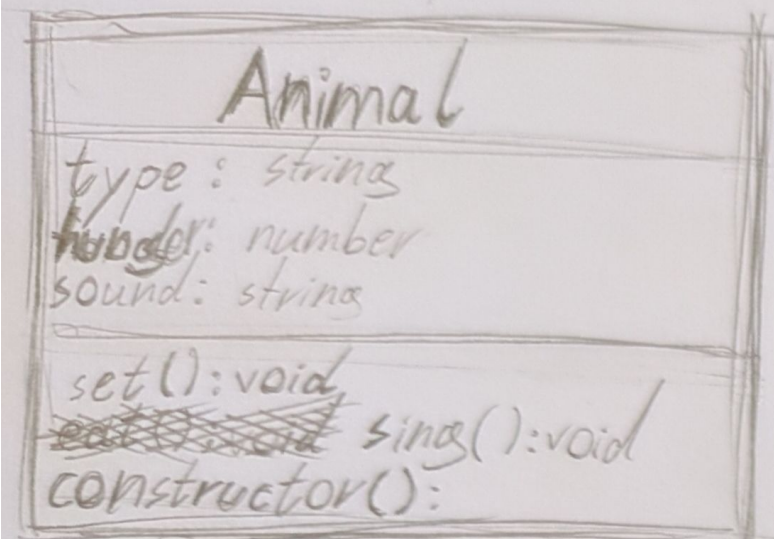 Animal
type: string
: number
sound: string
set(): void
sing(): void
constructor():